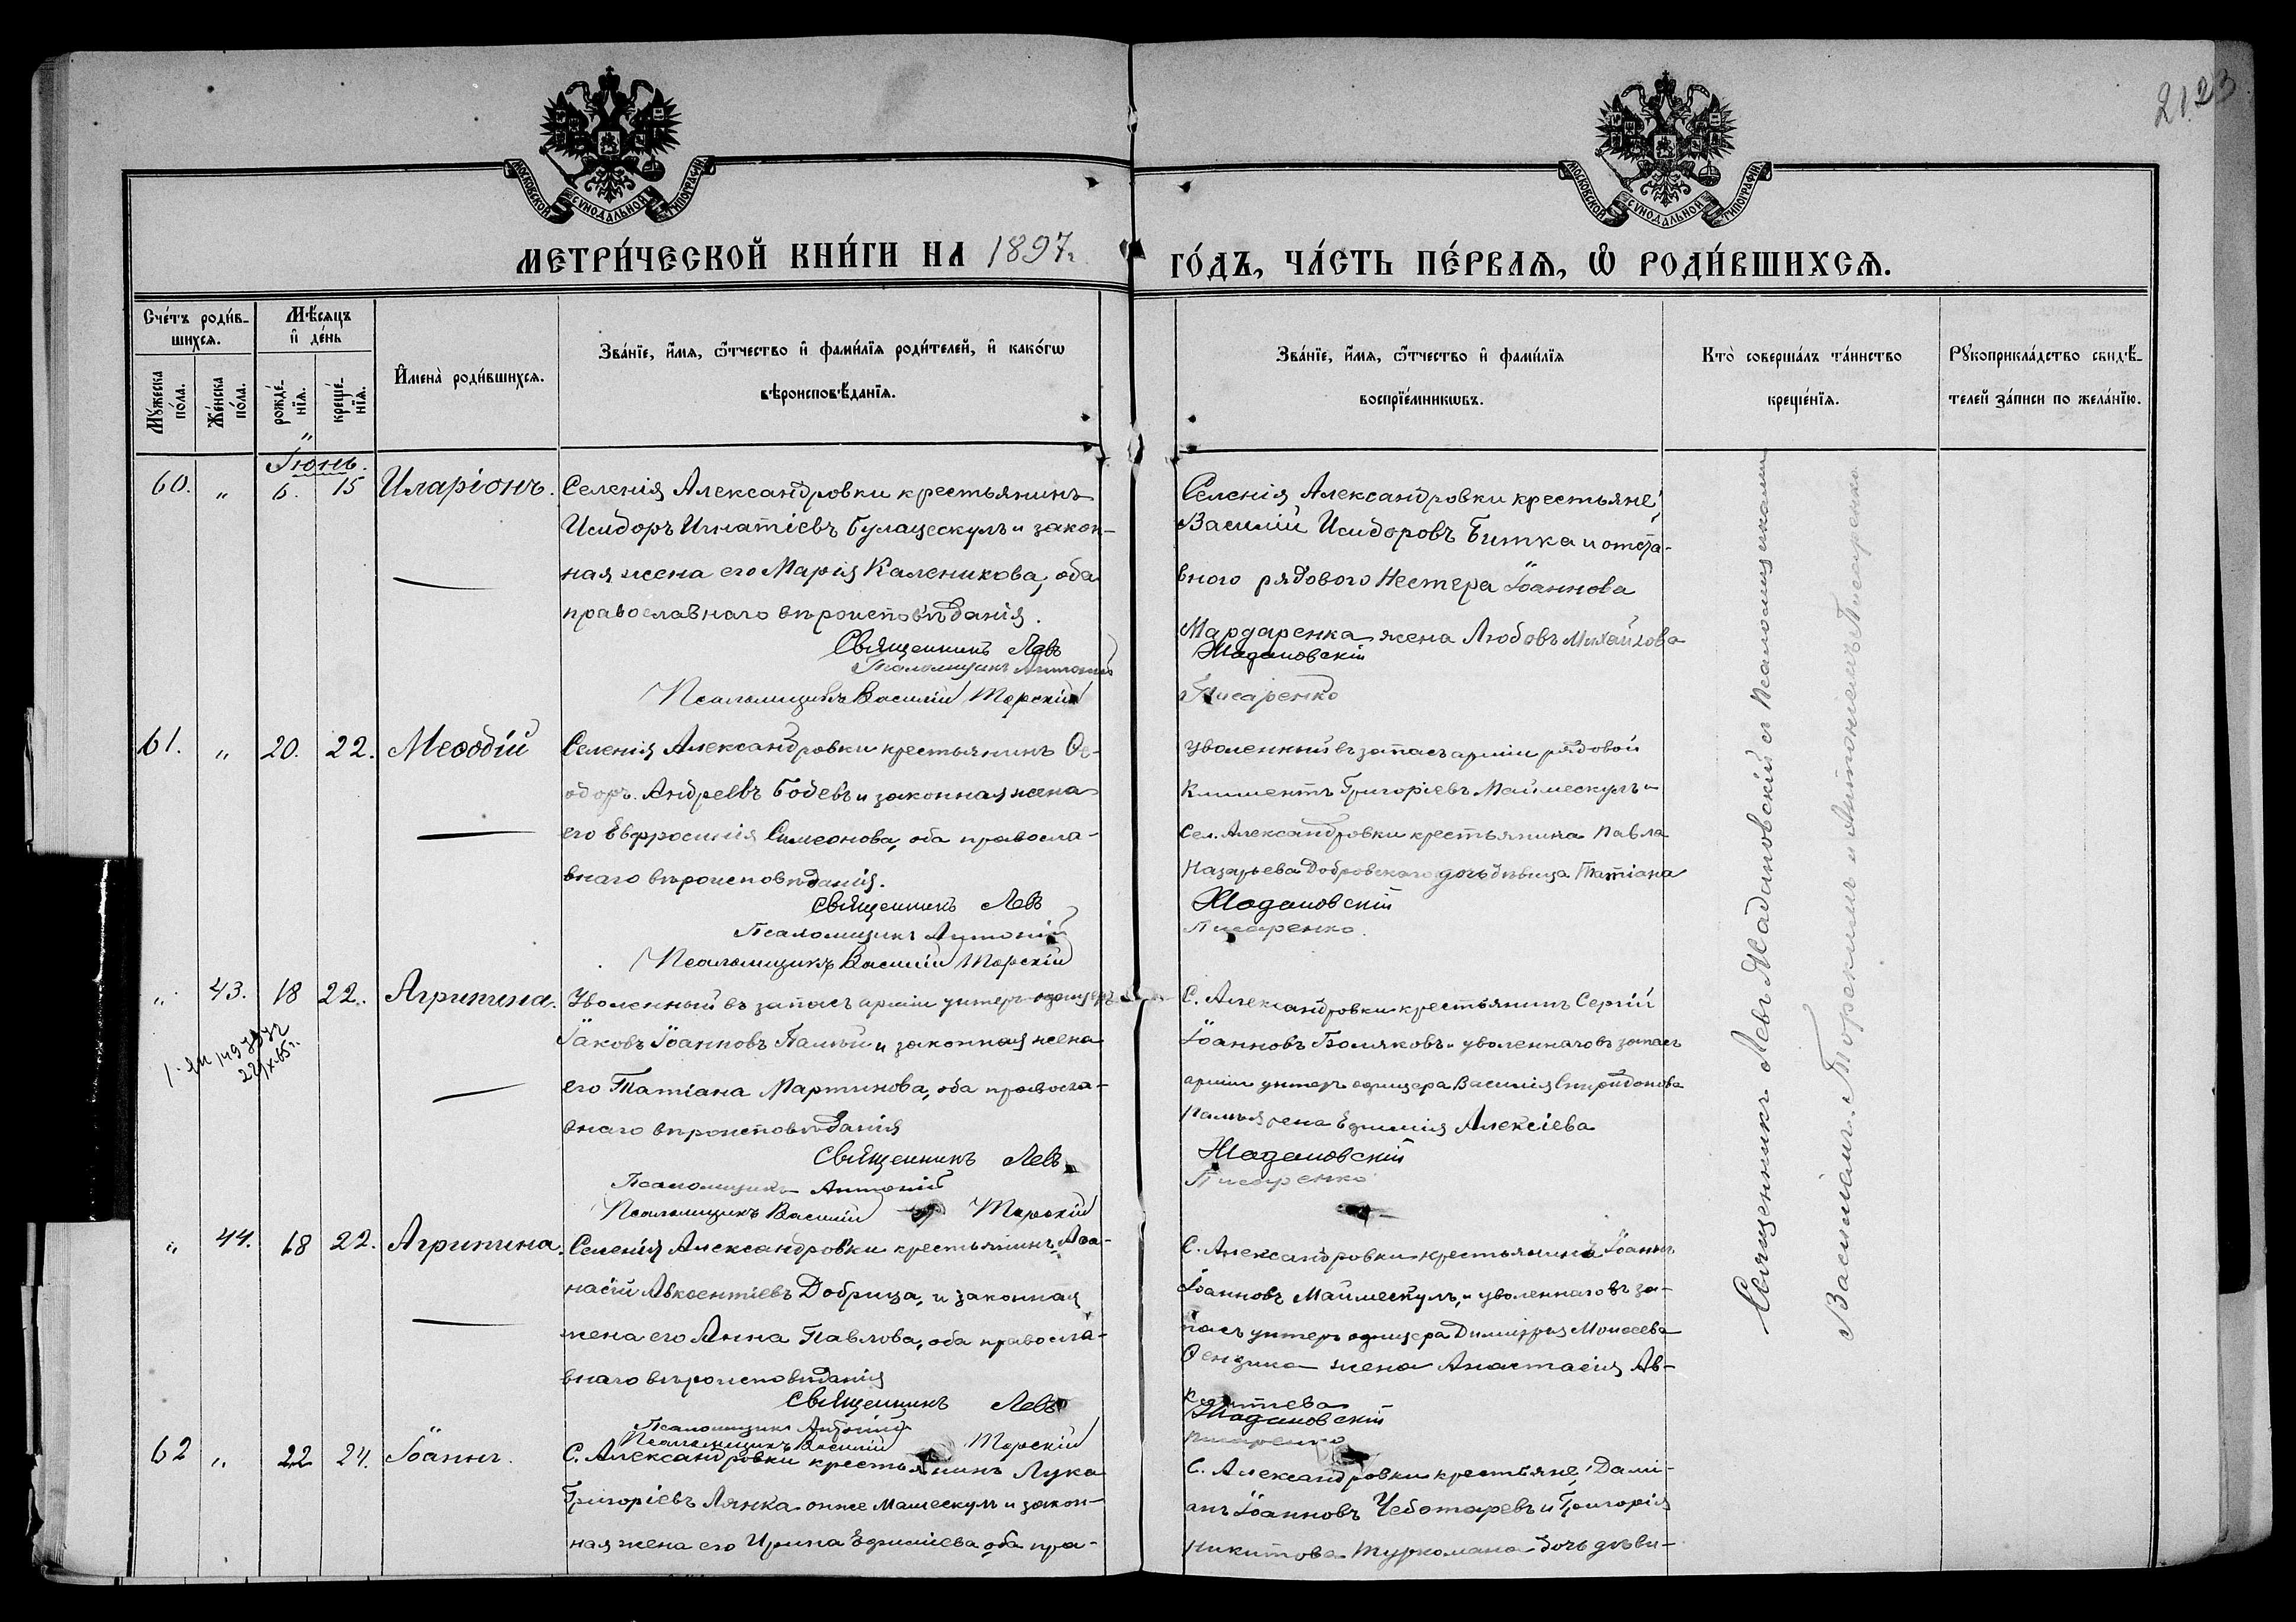 21.23
МОСКОВСКОЙ СѴНОДАЛЬНОЙ ТИПОГРАФІИ
МОСКОВСКОЙ СѴНОДАЛЬНОЙ ТИПОГРАФІИ
МЕТРИ́ЧЕСКОЙ КНИ́ГИ НА 1897г. ГО́ДЪ, ЧА́СТЬ ПЕ́РВАѦ, Ѡ РОДИ́ВШИХСѦ.
Сче́тъ роди́в-
шихсѧ.
Мѣ́сѧцъ
и҆ де́нь
Мꙋ́жеска по́ла.
Же́нска по́ла.
рожде́-
нїѧ.
креще́-
нїѧ.
И҆мена̀ роди́вшихсѧ.
Зва́нїе, и҆́мѧ, ѻ҆́тчество и҆ фами́лїѧ роди́телей, и҆ како́гѡ
вѣроисповѣ́данїѧ.
Зва́нїе, и҆́мѧ, ѻ҆́тчество и҆ фами́лїѧ
воспрїе́мникѡвъ.
Кто̀ соверша́лъ та́инство
креще́нїѧ.
Рꙋкоприкла́дство свидѣ́-
телей за́писи по жела́нїю.
Іюнь.
60. " 6. 15 Иларіонъ.
Селенія Александровки крестьянинъ
Исидоръ Игнатіевъ Булацескулъ и закон-
ная жена его Марія Каленикова, оба
православнаго вѣроисповѣданія.
Священникъ Левъ
Псаломщикъ Антоній
Псаломщикъ Василій Торскій
Селенія Александровки крестьяне:
Василій Исидоровъ Битка и отста-
вного рядового Нестера Іоаннова
Мардаренка жена Любовь Михайлова
Жадановскій
Писаренко
61. " 20. 22. Меѳодій
Селенія Александровки крестьянинъ Ѳе-
одоръ Андреевъ Бодевъ и законная жена
его Евфросинія Симеонова, оба правосла-
внаго вѣроисповѣданія.
Священникъ Левъ
Псаломщикъ Антоній
Псаломщикъ Василій Торскій
Уволенный въ запасъ арміи рядовой
Климентъ Григоріевъ Маймескулъ и
Сел. Александровки крестьянина Павла
Назарьева Добровскаго дочь дѣвица Татіана
Жадановскій
Писаренко.
" 43. 18 22. Агрипина.
22/X.65г.
Уволенный въ запасъ арміи унтеръ-офицеръ
Іаковъ Іоанновъ Палій и законная жена
его Татіана Мартинова, оба правосла-
внаго вѣроисповѣданія
Священникъ Левъ
Псаломщикъ Антоній
Псаломщикъ Василій Торскій
С. Александровки крестьянинъ Сергій
Іоанновъ Боляковъ и уволеннаго въ запасъ
арміи унтеръ офицера Василія Спиридонова
Палія жена Ефимія Алексіева
Жадановскій
Писаренко
" 44. 18 22. Агрипина.
Селенія Александровки крестьянинъ Аѳа-
насій Авксентіевъ Добрица, и законная
жена его Анна Павлова, оба правосла-
внаго вѣроисповѣданія
Священникъ Левъ
Псаломщикъ Антоній
Псаломщикъ Василій Торскій
С. Александровки крестьянинъ Іоаннъ
Іоанновъ Маймескулъ, и уволеннаго въ за-
пасъ унтеръ офицера Димитрія Моисеева
жена Анастасія Ав-
ксентіева
Жадановскій
Писаренко
62 " 22 24. Іоаннъ.
С. Александровки крестьянинъ Лука
Григоріевъ Лянка онже Машескулъ и закон-
ная жена его Ирина Ефиміева оба пра-
С. Александровки крестьяне: Дамі-
анъ Іоанновъ Чеботаревъ и Григорія
Никитова Туркомана дочь дѣви-
Священникъ Левъ Жадановскій съ псаломщиками
Василіемъ Торскимъ и Антоніемъ Писаренко.